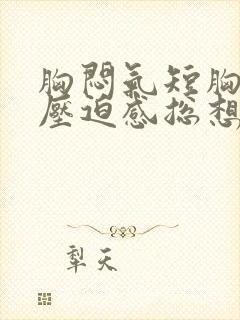 胸悶氣短胸
壓迫感總想
犁天